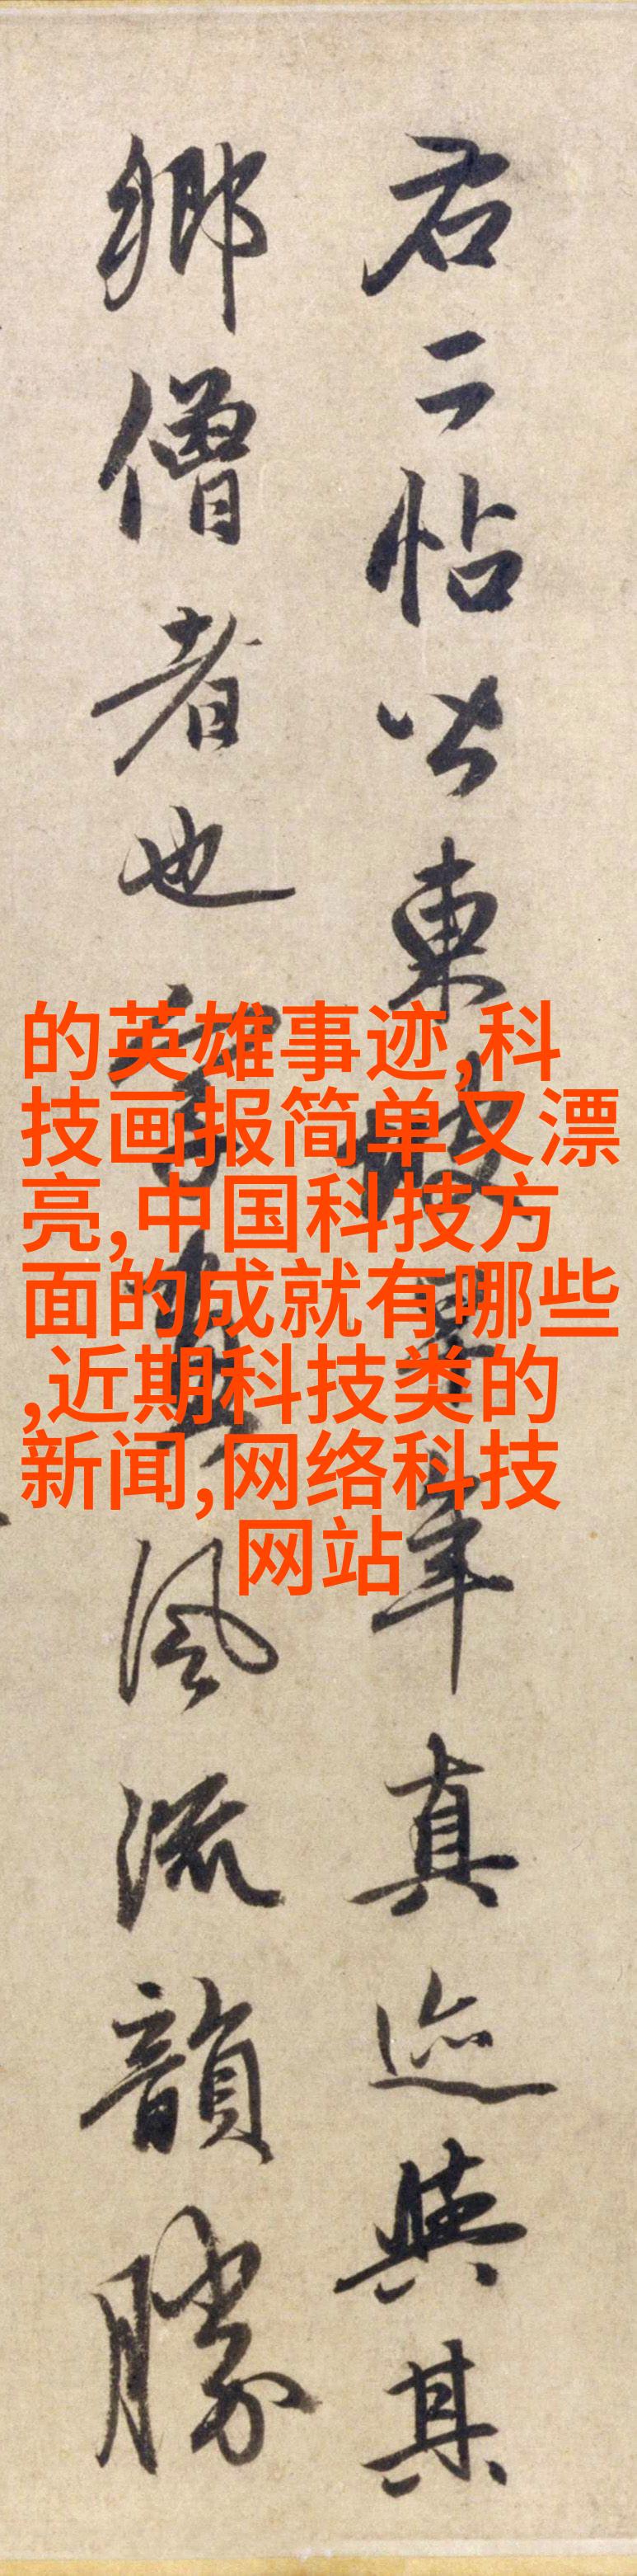 右二帖皆東坡早年真迹與其
鄉僧者也字畫風流韻勝
的英雄事迹,科
技画报简单又漂
亮,中国科技方
面的成就有哪些
,近期科技类的
新闻,网络科技
网站